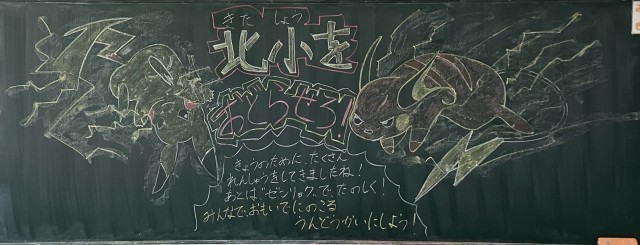 きた しょう
北小を
おどらせろ！
きょうのために、たくさん
れんしゅうをしてきましたね！
あとは"ゼンリョク"で、たのしく！
みんなで、おもいでにのこる
うんどうかいにしよう！